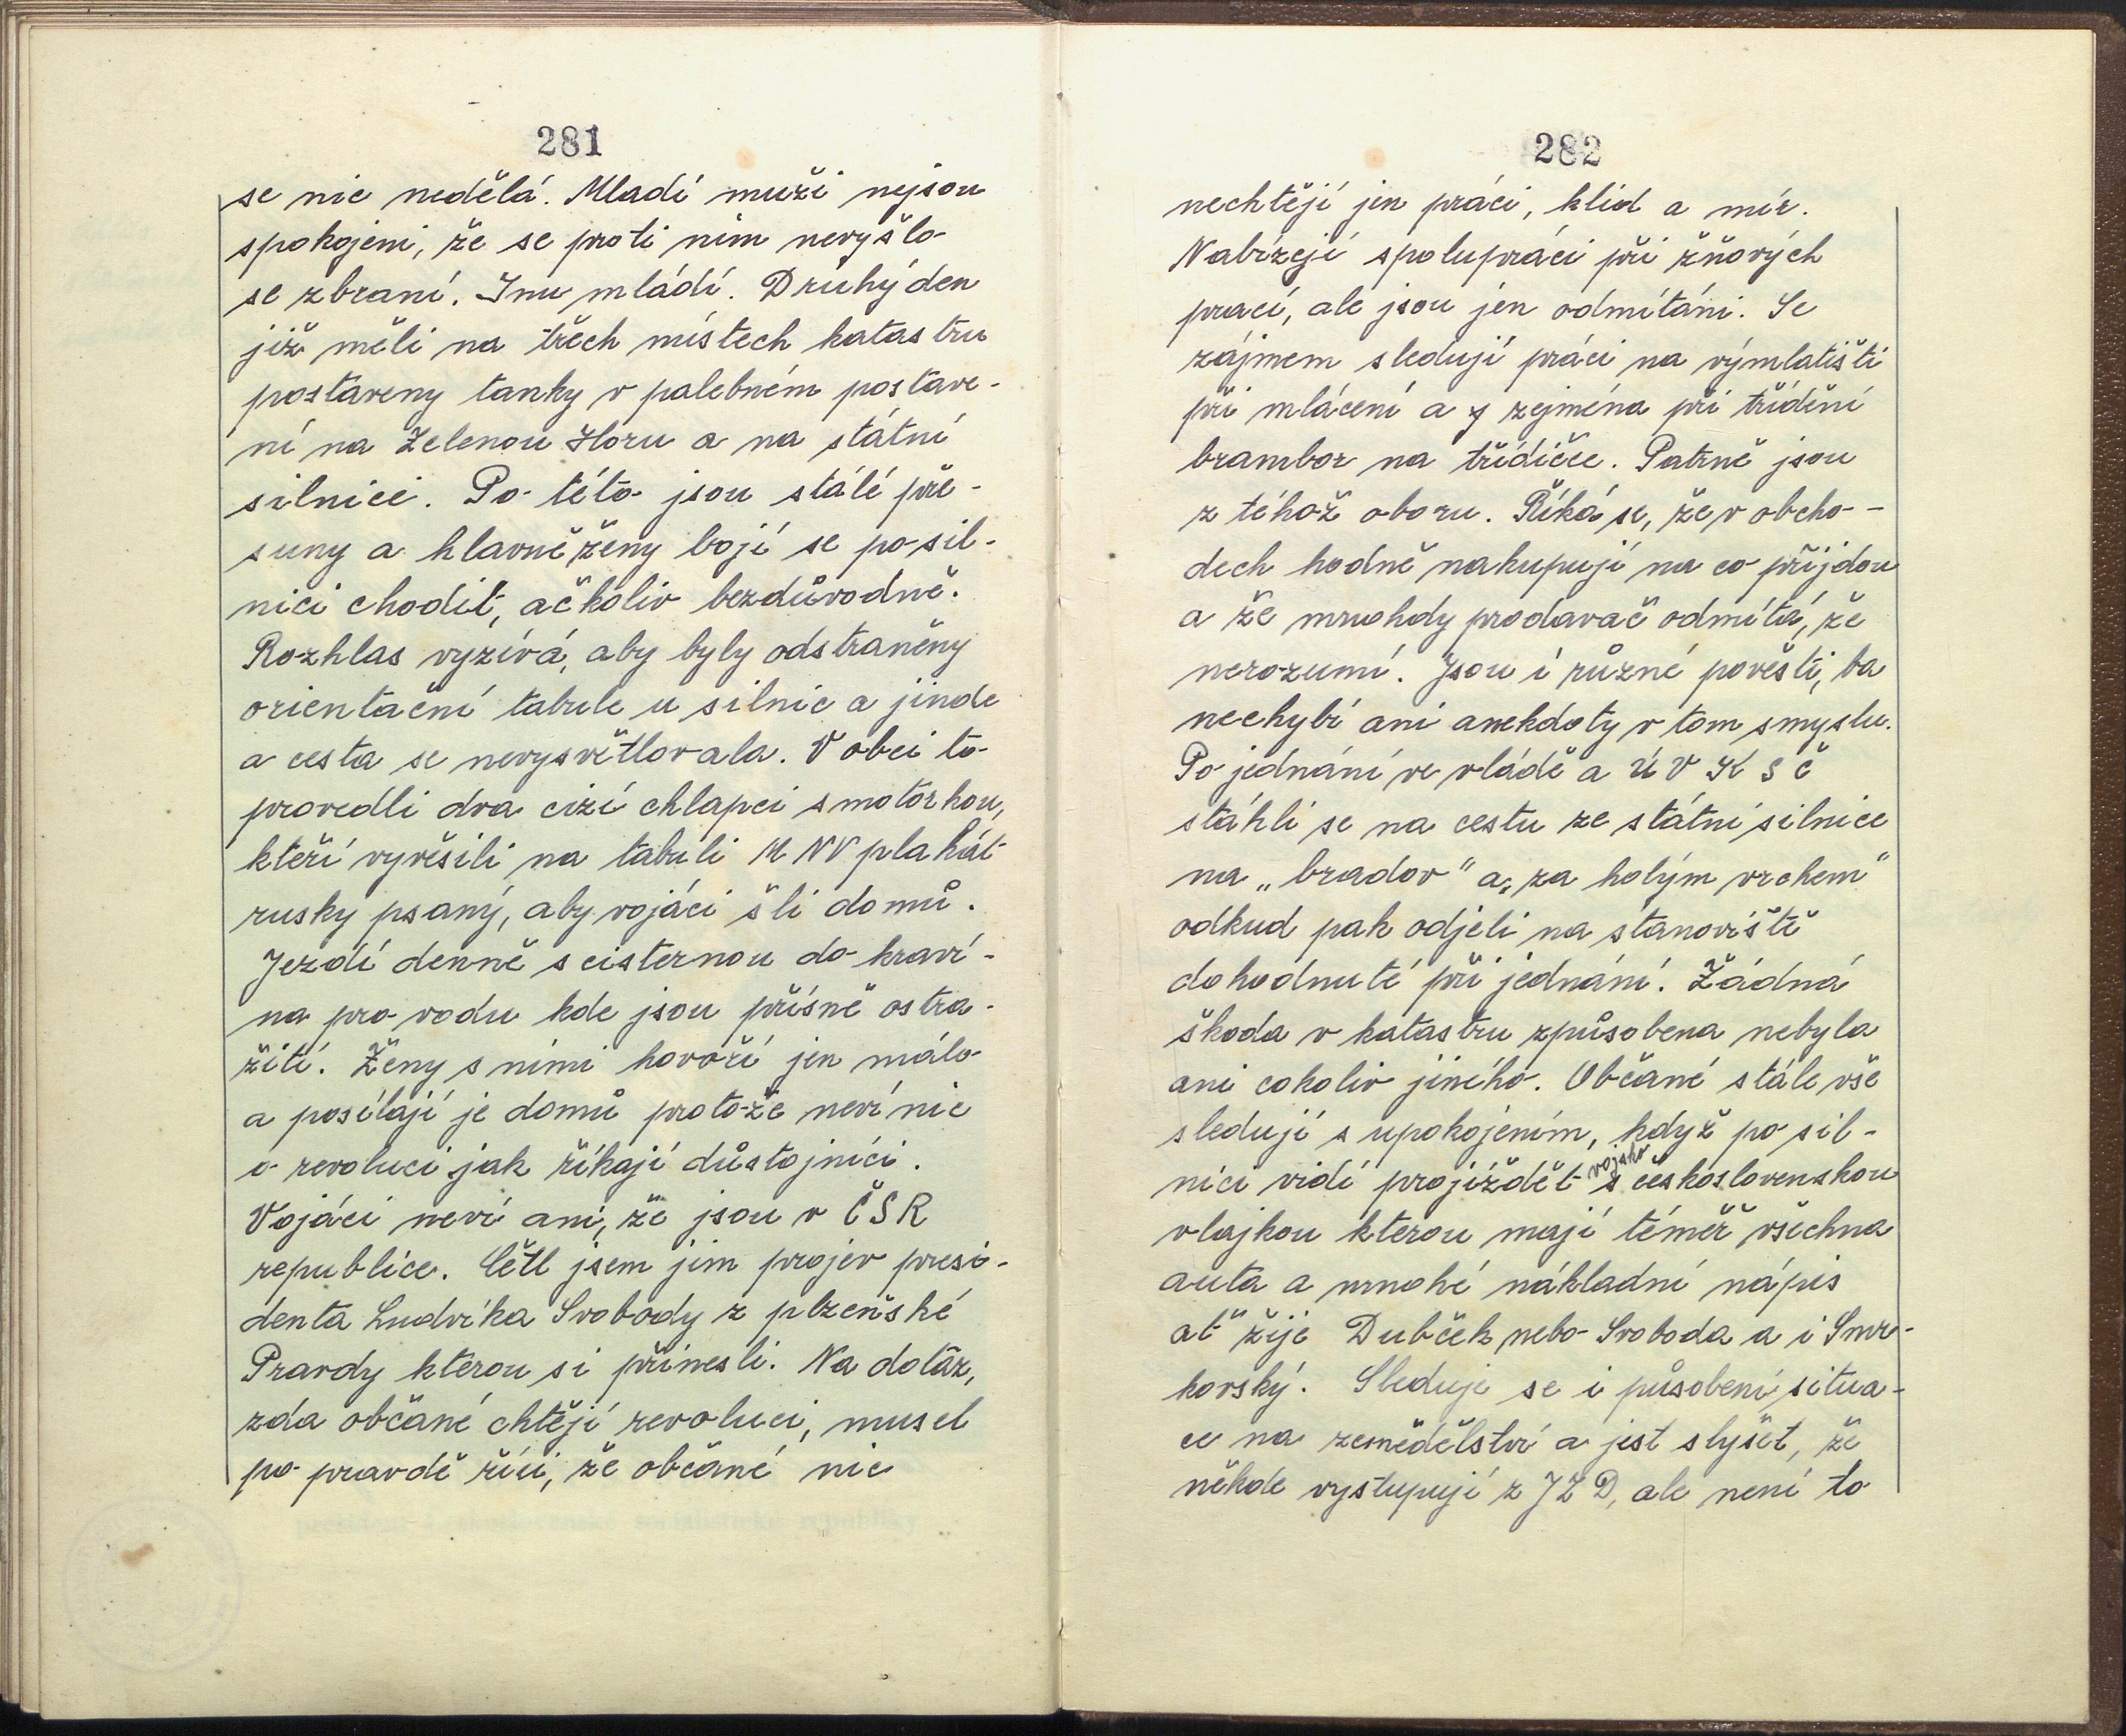 281
se nic nedělá. Mladí muži nejsou
spokojeni, že se proti nim nevyšlo
se zbraní. Inu mládí. Druhý den
již měli na třech místech katastru
postaveny tanky v palebném postave-
ní na Zelenou Horu a na státní
silnici. Po této jsou stálé pře-
suny a hlavně ženy bojí se po sil-
nici chodit, ačkoliv bezdůvodně.
Rozhlas vyzívá, aby byly odstraněny
orientační tabule u silnic a jinde
a cesta se nevysvětlovala. V obci to
provedli dva cizí chlapci s motorkou,
kteří vyvěsili na tabuli MNV plakát
rusky psaný, aby vojáci šli domů.
Jezdí denně s cisternou do kraví-
na pro vodu kde jsou přísně ostra-
žití. Ženy s nimi hovoří jen málo
a posílají je domů protože neví nic
o revoluci jak říkají důstojníci.
Vojáci neví ani, že jsou v ČSR
republice. Četl jsem jim projev presi-
denta Ludvíka Svobody z plzeňské
Pravdy kterou si přinesli. Na dotaz,
zda občané chtějí revoluci, musel
po pravdě říci, že občané nic
282
nechtějí jen práci, klid a mír.
Nabízejí spolupráci při žňových
prací, ale jsou jen odmítáni. Se
zájmem sledují práci na výmlatišti
při mlácení a zejména při třídění
brambor na třídičce. Patrně jsou
z téhož oboru. Říká se, že v obcho-
dech hodně nakupují na co přijdou
a že mnohdy prodavač odmítá, že
nerozumí. Jsou i různé pověsti, ba
nechybí ani anekdoty v tom smyslu.
Po jednání ve vládě a ÚV KSČ
stáhli se na cestu ze státní silnice
na „bradov" a „za holým vrchem"
odkud pak odjeli na stanoviště
dohodnuté při jednání. Žádná
škoda v katastru způsobena nebyla
ani cokoliv jiného. Občané stále vše
sledují s upokojením, když po sil-
nici vidí projíždět vojsko s československou
vlajkou kterou mají téměř všechna
auta a mnohé nákladní nápis
ať žije Dubček nebo Svoboda a i Smr-
kovský. Sleduje se i působení situa-
ce na zemědělství a jest slyšet, že
někde vystupují z JZD, ale není to